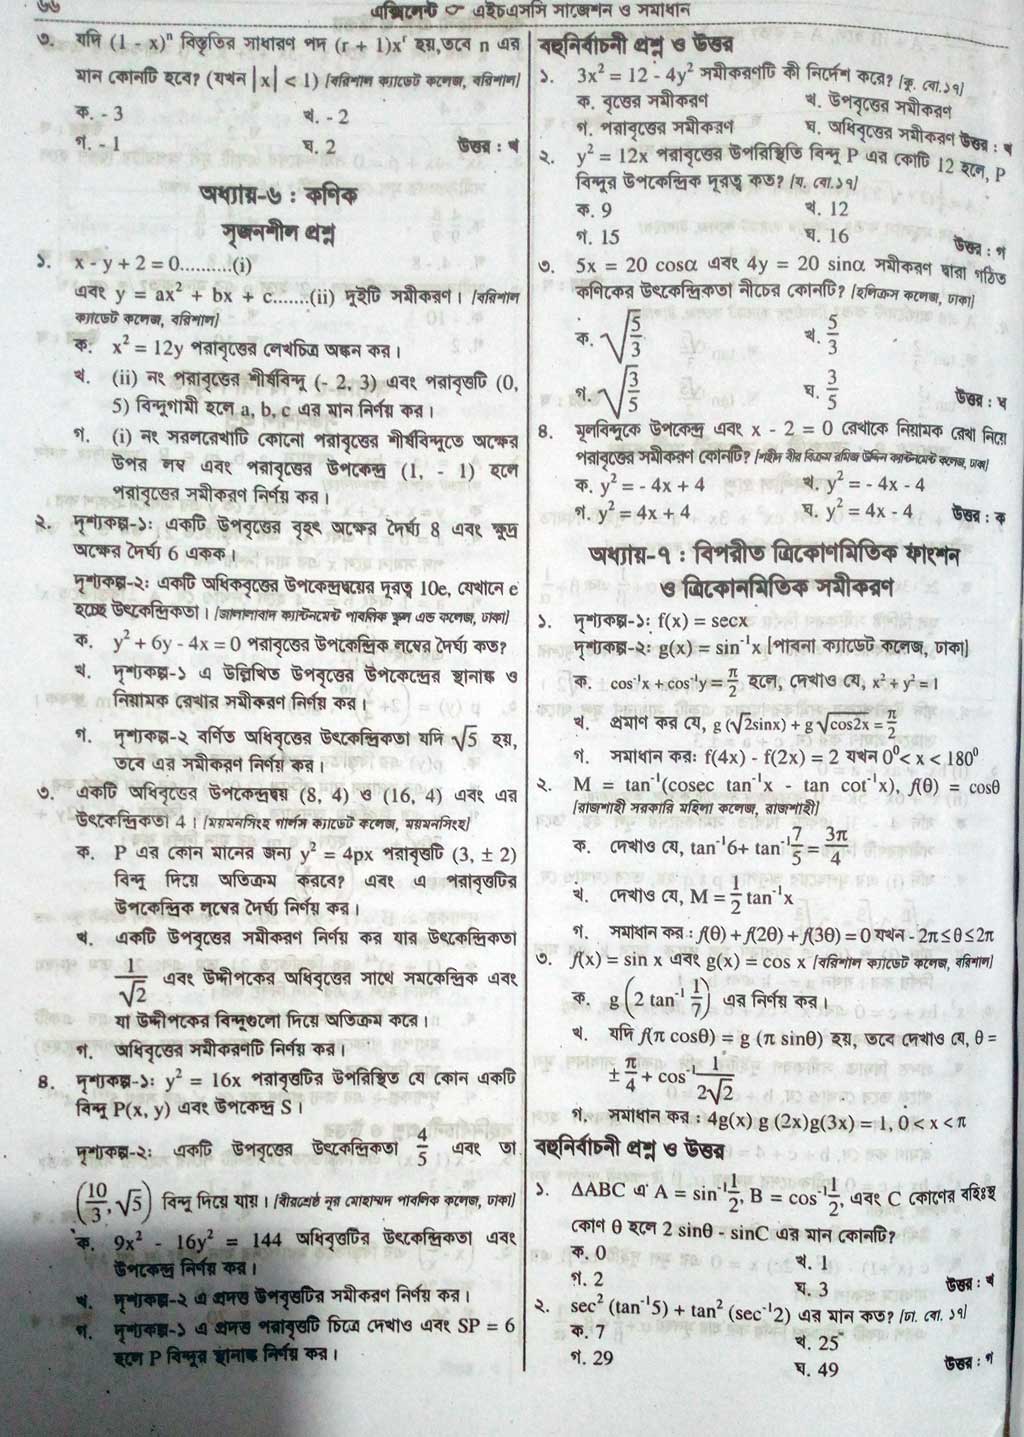 ৬৬
এক্সিলেন্ট ☞ এইচএসসি সাজেশন ও সমাধান
৩. যদি (1 - x)ⁿ বিস্তৃতির সাধারণ পদ (r + 1)xʳ হয়,তবে n এর
মান কোনটি হবে? (যখন |x| < 1) [বরিশাল ক্যাডেট কলেজ, বরিশাল]
ক. - 3 খ. - 2
গ. - 1 ঘ. 2 উত্তর : খ
অধ্যায়-৬ : কণিক
সৃজনশীল প্রশ্ন
১. x - y + 2 = 0..........(i)
এবং y = ax² + bx + c.......(ii) দুইটি সমীকরণ। [বরিশাল
ক্যাডেট কলেজ, বরিশাল]
ক. x² = 12y পরাবৃত্তের লেখচিত্র অঙ্কন কর।
খ. (ii) নং পরাবৃত্তের শীর্ষবিন্দু (- 2, 3) এবং পরাবৃত্তটি (0,
5) বিন্দুগামী হলে a, b, c এর মান নির্ণয় কর।
গ. (i) নং সরলরেখাটি কোনো পরাবৃত্তের শীর্ষবিন্দুতে অক্ষের
উপর লম্ব এবং পরাবৃত্তের উপকেন্দ্র (1, - 1) হলে
পরাবৃত্তের সমীকরণ নির্ণয় কর।
২. দৃশ্যকল্প-১: একটি উপবৃত্তের বৃহৎ অক্ষের দৈর্ঘ্য 8 এবং ক্ষুদ্র
অক্ষের দৈর্ঘ্য 6 একক।
দৃশ্যকল্প-২: একটি অধিকবৃত্তের উপকেন্দ্রদ্বয়ের দূরত্ব 10e, যেখানে e
হচ্ছে উৎকেন্দ্রিকতা। [জালালাবাদ ক্যান্টনমেন্ট পাবলিক স্কুল এন্ড কলেজ, ঢাকা]
ক. y² + 6y - 4x = 0 পরাবৃত্তের উপকেন্দ্রিক লম্বের দৈর্ঘ্য কত?
খ. দৃশ্যকল্প-১ এ উল্লিখিত উপবৃত্তের উপকেন্দ্রের স্থানাঙ্ক ও
নিয়ামক রেখার সমীকরণ নির্ণয় কর।
গ. দৃশ্যকল্প-২ বর্ণিত অধিবৃত্তের উৎকেন্দ্রিকতা যদি √5 হয়,
তবে এর সমীকরণ নির্ণয় কর।
৩. একটি অধিবৃত্তের উপকেন্দ্রদ্বয় (8, 4) ও (16, 4) এবং এর
উৎকেন্দ্রিকতা 4। [ময়মনসিংহ গার্লস ক্যাডেট কলেজ, ময়মনসিংহ]
ক. P এর কোন মানের জন্য y² = 4px পরাবৃত্তটি (3, ± 2)
বিন্দু দিয়ে অতিক্রম করবে? এবং এ পরাবৃত্তটির
উপকেন্দ্রিক লম্বের দৈর্ঘ্য নির্ণয় কর।
খ. একটি উপবৃত্তের সমীকরণ নির্ণয় কর যার উৎকেন্দ্রিকতা
1/√2 এবং উদ্দীপকের অধিবৃত্তের সাথে সমকেন্দ্রিক এবং
যা উদ্দীপকের বিন্দুগুলো দিয়ে অতিক্রম করে।
গ. অধিবৃত্তের সমীকরণটি নির্ণয় কর।
৪. দৃশ্যকল্প-১: y² = 16x পরাবৃত্তটির উপরিস্থিত যে কোন একটি
বিন্দু P(x, y) এবং উপকেন্দ্র S।
দৃশ্যকল্প-২: একটি উপবৃত্তের উৎকেন্দ্রিকতা 4/5 এবং তা
(10/3, √5) বিন্দু দিয়ে যায়। [বীরশ্রেষ্ঠ নূর মোহাম্মদ পাবলিক কলেজ, ঢাকা]
ক. 9x² - 16y² = 144 অধিবৃত্তটির উৎকেন্দ্রিকতা এবং
উপকেন্দ্র নির্ণয় কর।
খ. দৃশ্যকল্প-২ এ প্রদত্ত উপবৃত্তটির সমীকরণ নির্ণয় কর।
গ. দৃশ্যকল্প-১ এ প্রদত্ত পরাবৃত্তটি চিত্রে দেখাও এবং SP = 6
হলে P বিন্দুর স্থানাঙ্ক নির্ণয় কর।
বহুনির্বাচনী প্রশ্ন ও উত্তর
১. 3x² = 12 - 4y² সমীকরণটি কী নির্দেশ করে? [কু. বো.১৭]
ক. বৃত্তের সমীকরণ খ. উপবৃত্তের সমীকরণ
গ. পরাবৃত্তের সমীকরণ ঘ. অধিবৃত্তের সমীকরণ উত্তর : খ
২. y² = 12x পরাবৃত্তের উপরিস্থিতি বিন্দু P এর কোটি 12 হলে, P
বিন্দুর উপকেন্দ্রিক দূরত্ব কত? [য. বো.১৭]
ক. 9 খ. 12
গ. 15 ঘ. 16 উত্তর : গ
৩. 5x = 20 cosα এবং 4y = 20 sinα সমীকরণ দ্বারা গঠিত
কণিকের উৎকেন্দ্রিকতা নীচের কোনটি? [হলিক্রস কলেজ, ঢাকা]
ক. √(5/3) খ. 5/3
গ. √(3/5) ঘ. 3/5 উত্তর : ঘ
৪. মূলবিন্দুকে উপকেন্দ্র এবং x - 2 = 0 রেখাকে নিয়ামক রেখা নিয়ে
পরাবৃত্তের সমীকরণ কোনটি? [শহীদ বীর বিক্রম রমিজ উদ্দিন ক্যান্টনমেন্ট কলেজ, ঢাকা]
ক. y² = - 4x + 4 খ. y² = - 4x - 4
গ. y² = 4x + 4 ঘ. y² = 4x - 4 উত্তর : ক
অধ্যায়-৭ : বিপরীত ত্রিকোণমিতিক ফাংশন
ও ত্রিকোনমিতিক সমীকরণ
১. দৃশ্যকল্প-১: f(x) = secx
দৃশ্যকল্প-২: g(x) = sin⁻¹x [পাবনা ক্যাডেট কলেজ, ঢাকা]
ক. cos⁻¹x + cos⁻¹y = π/2 হলে, দেখাও যে, x² + y² = 1
খ. প্রমাণ কর যে, g (√2sinx) + g √cos2x = π/2
গ. সমাধান কর: f(4x) - f(2x) = 2 যখন 0⁰ < x < 180⁰
২. M = tan⁻¹(cosec tan⁻¹x - tan cot⁻¹x), f(θ) = cosθ
[রাজশাহী সরকারি মহিলা কলেজ, রাজশাহী]
ক. দেখাও যে, tan⁻¹6+ tan⁻¹7/5 = 3π/4
খ. দেখাও যে, M = 1/2 tan⁻¹x
গ. সমাধান কর : f(θ) + f(2θ) + f(3θ) = 0 যখন - 2π ≤ θ ≤ 2π
৩. f(x) = sin x এবং g(x) = cos x [বরিশাল ক্যাডেট কলেজ, বরিশাল]
ক. g (2 tan⁻¹ 1/7) এর নির্ণয় কর।
খ. যদি f(π cosθ) = g (π sinθ) হয়, তবে দেখাও যে, θ =
± π/4 + cos⁻¹ 1/2√2
গ. সমাধান কর : 4g(x) g (2x)g(3x) = 1, 0 < x < π
বহুনির্বাচনী প্রশ্ন ও উত্তর
১. ΔABC এ A = sin⁻¹1/2, B = cos⁻¹1/2, এবং C কোণের বহিঃস্থ
কোণ θ হলে 2 sinθ - sinC এর মান কোনটি?
ক. 0 খ. 1
গ. 2 ঘ. 3 উত্তর : খ
২. sec² (tan⁻¹5) + tan² (sec⁻¹2) এর মান কত? [ঢা. বো. ১৭]
ক. 7 খ. 25
গ. 29 ঘ. 49 উত্তর : গ